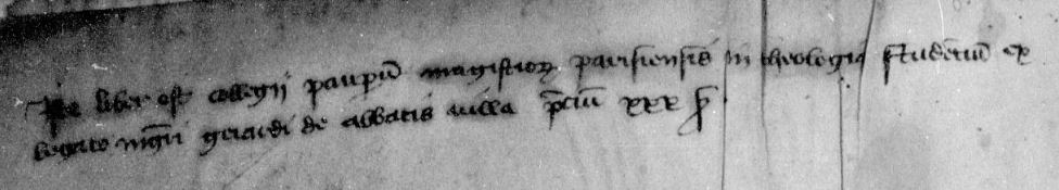 Iste liber est collegii paupum̄ magistroꝝ parisiensis in theologia studentiū ex
legato mgr̄i geraldi de abbatis uilla p̄ciū xxx s̄